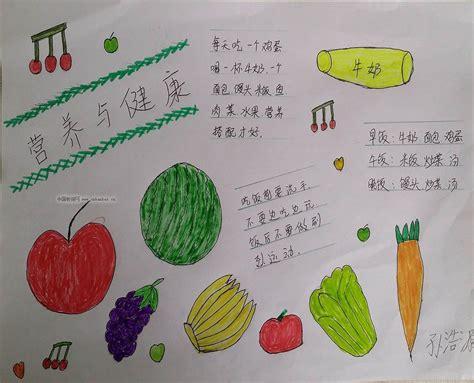 营养与健康
每天吃一个鸡蛋
喝一杯牛奶.一个
面包 馒头 米饭 鱼
肉 菜 水果 营养
搭配才好.
牛奶
早饭:牛奶 面包 鸡蛋
午饭:米饭 炒菜 汤
晚饭:馒头 炒菜 汤
吃饭前要洗手
不要边吃边玩
饭后不要做剧
烈运动.
孙浩